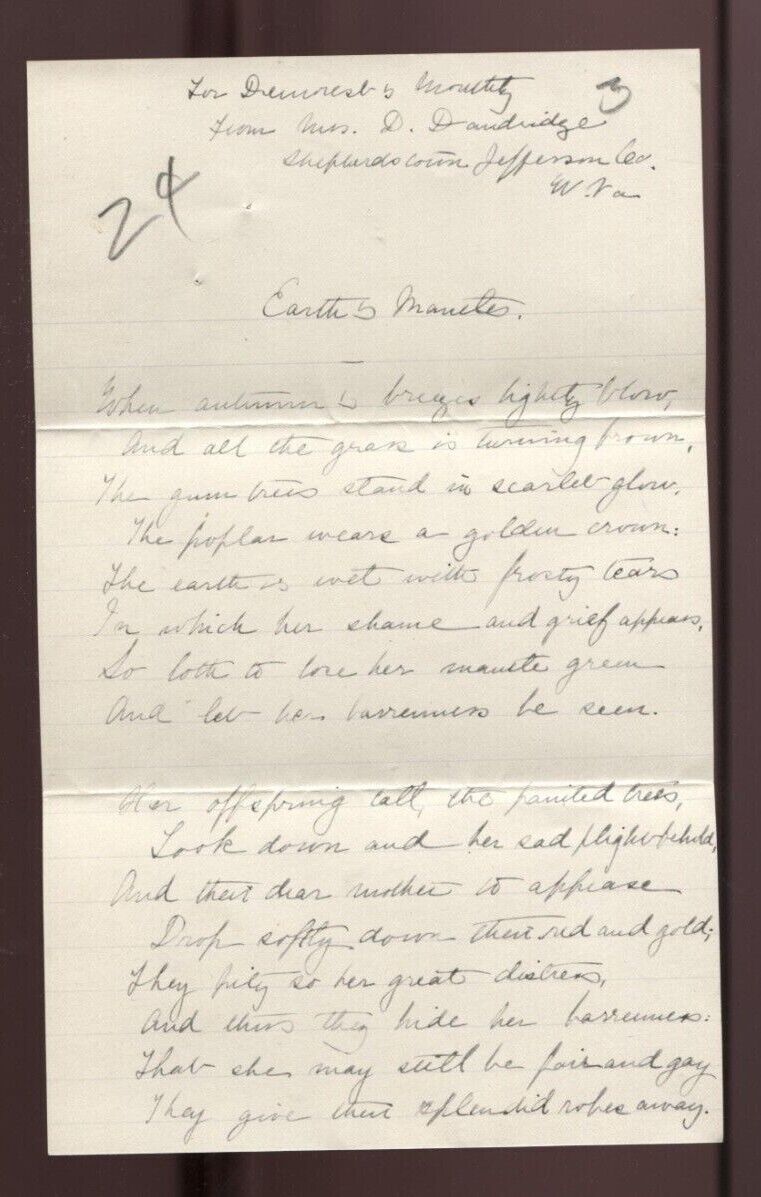 For Demorest's Monthly
3
From Mrs. D. Dandridge
Shepherdstown Jefferson Co.
W. Va
24
Earth's Mantles.
When autumn's breezes lightly blow,
And all the grass is turning brown,
The gum trees stand in scarlet glow,
The poplar wears a golden crown:
The earth is wet with frosty tears
In which her shame and grief appears,
So loth to lose her mantle green
And let her barrenness be seen.
Her offspring tall, the painted trees,
Look down and her sad plight behold,
And their dear mother to appease
Drop softly down their red and gold;
They pity so her great distress,
And thus they hide her barrenness:
That she may still be fair and gay
They give their splendid robes away.